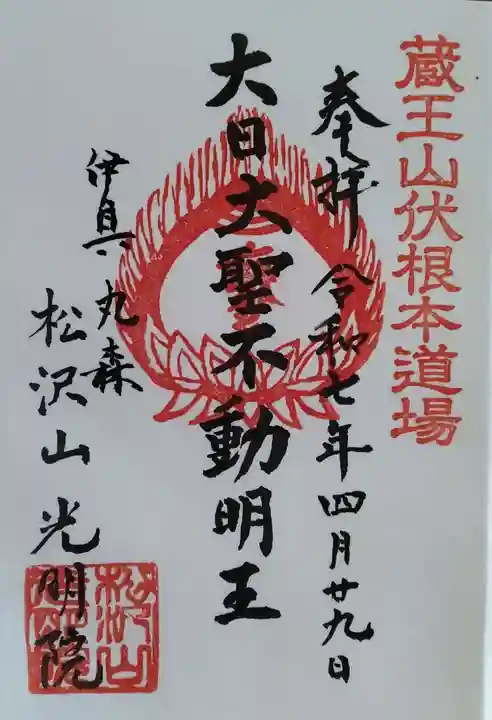 蔵王山伏根本道場
奉拝 令和七年四月廿九日
大日大聖不動明王
伊具 丸森
松沢山光明院